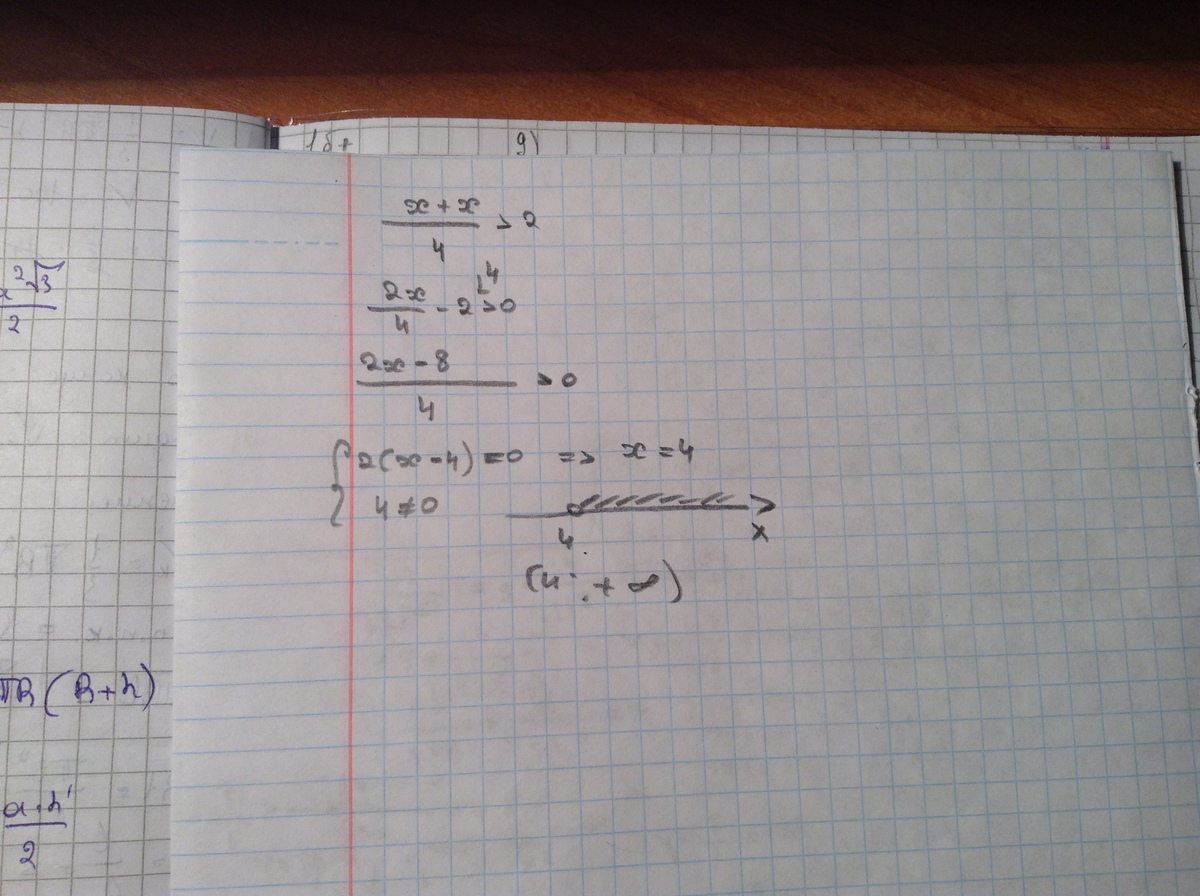 9)
x + x
4
> 2
2x
4
- 2 > 0
4
2x - 8
4
> 0
{ 2(x - 4) = 0 => x = 4
4 ≠ 0
4
x
(4 ; + ∞)
2√3
2
πR(R + h)
a · h'
2